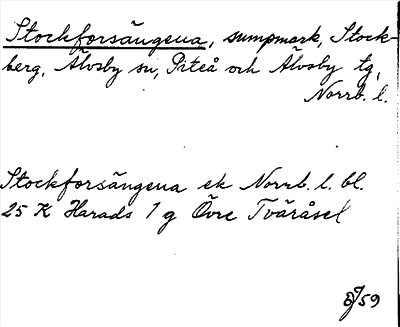 Stockforsängena, sumpmark, Stock-
berg, Älvsby sn, Piteå och Älvsby tg,
Norrb. l.
Stockforsängena ek Norrb. l. bl.
25 K Harads 1 g Övre Tväråsel
59